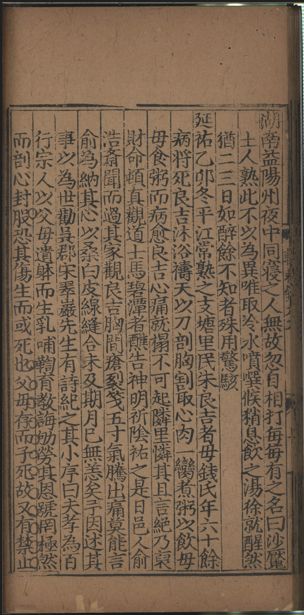 湖南益陽州夜中同寢之人無故忽自相打每每有之名曰沙魘
土人熟此不以為異唯取冷水噴噀候稍息飲之湯徐就醒然
猶二三日如醉餘不知者殊用驚駭
延祐乙卯冬平江常熟之支塘里民朱良吉者母錢氏年六十餘
病將死良吉沐浴禱天以刀剖胸割取心肉一臠煮粥以飲母
母食粥而病愈良吉心痛就榻不可起隣里憐其且言絕乃裒
財命頔真觀道士馬碧潭者醮告神明祈陰祐之是日邑人俞
浩齋聞而過其家觀良吉胸間瘡裂幾五寸氣騰出痛莫能言
俞為納其心以桑白皮線縫合未及期月已無恙矣予因述其
事以為世勸吳郡宋翠巖先生有詩紀之其小序曰夫孝為百
行宗人以父母遺躰而生乳哺鞠育教誨劬勞其恩罔極然
而剖心封股恐其傷生而或死也父母存而子死故又有禁止